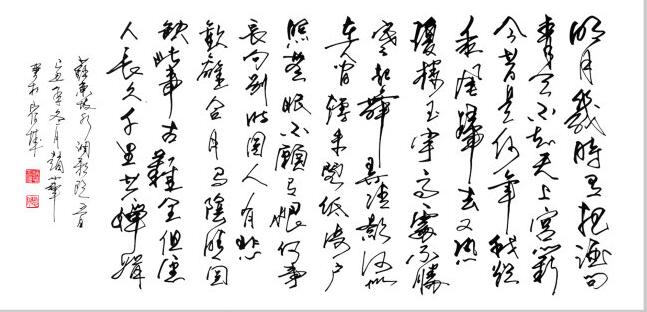 明月幾時有把酒問
青天不知天上宮闕
今昔是何年我欲
乘風歸去又恐
瓊樓玉宇高處不勝
寒起舞弄清影何似
在人間轉朱閣低綺戶
照無眠不應有恨何事
長向別時圓人有悲
歡離合月有陰晴圓
缺此事古難全但願
人長久千里共嬋娟
蘇東坡
冬月